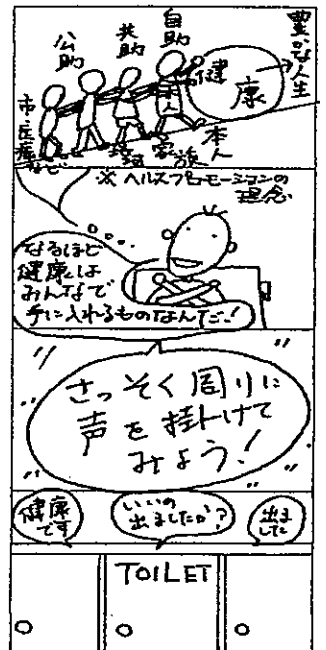 豊かな人生
自助
共助
公助
健
康
本人
本人
家族
市医療など
※ ヘルスプロモーションの
理念
なるほど
健康は
みんなで
手に入れるものなんだ!
さっそく周りに
声を掛けて
みよう!
健康
です
いいの
出ましたか?
出ま
した
TOILET